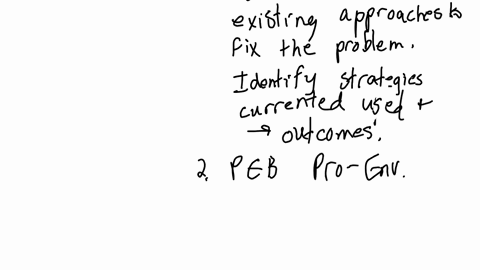 existing approaches to
fix the problem.
Identify strategies
currented used +
→ outcomes.
2. PEB Pro-Env.